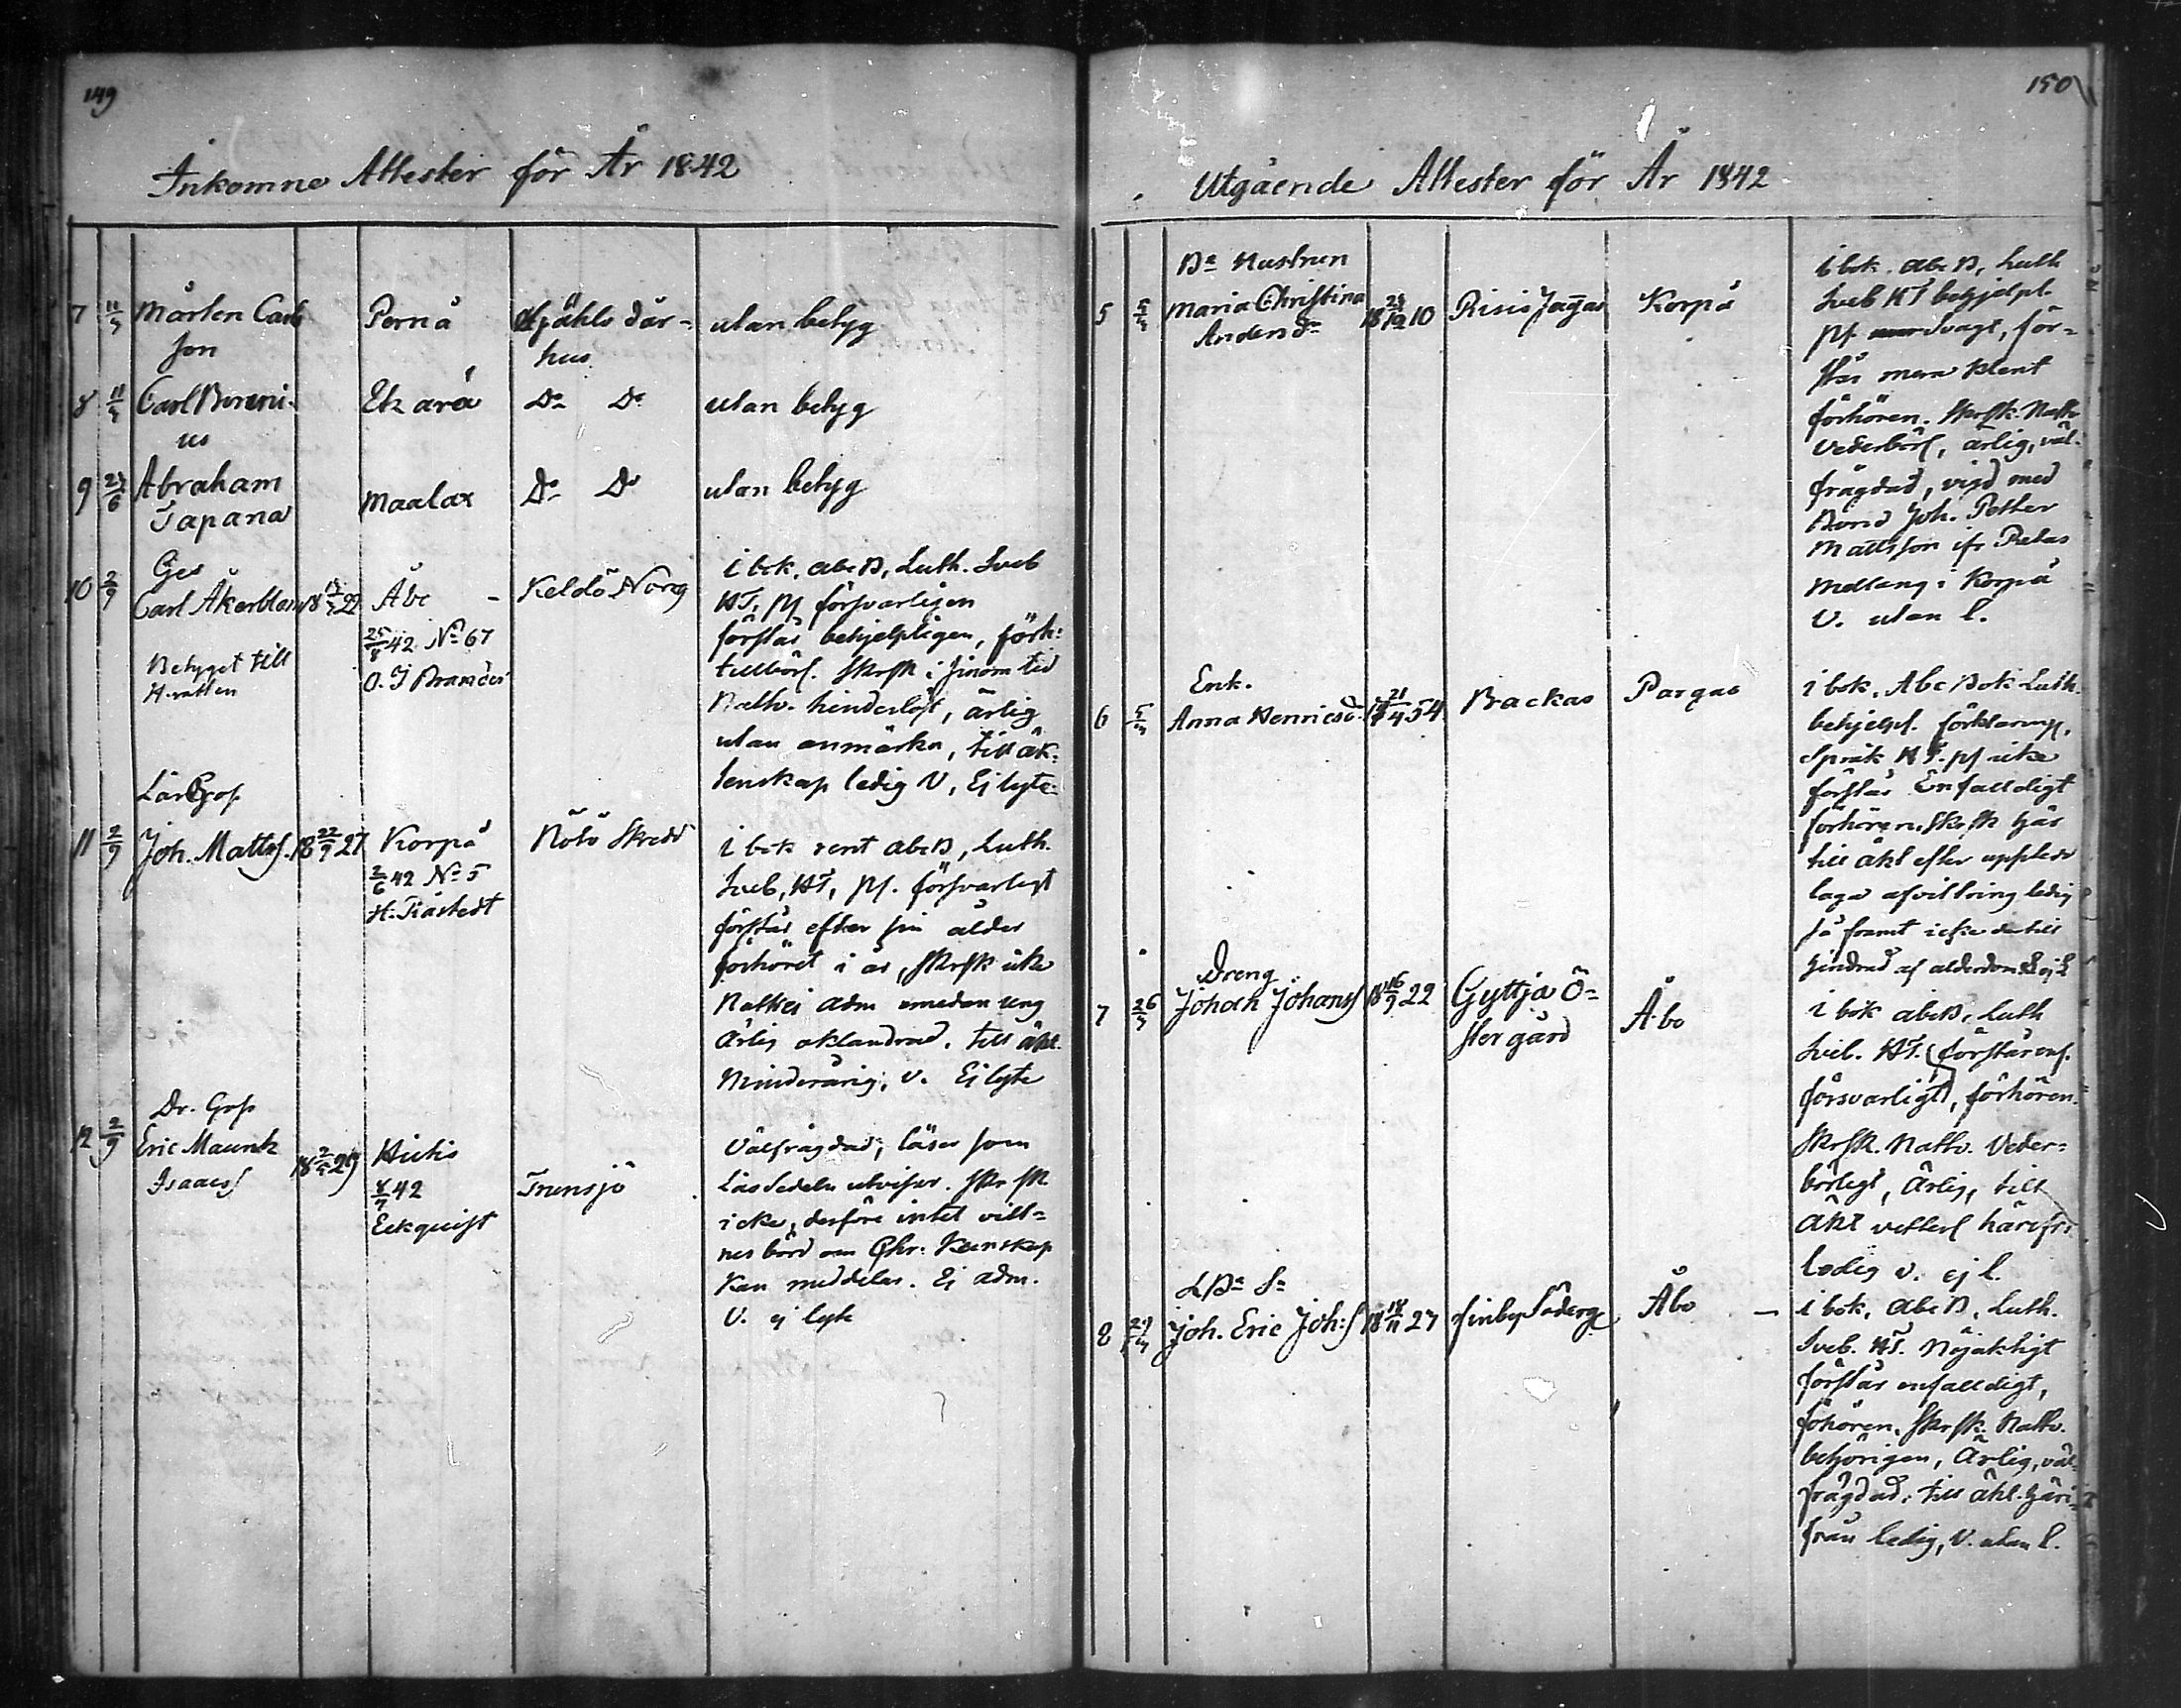 149
Inkomne Attester för År 1842
7 11/5 Mårten Carls
son
Pernå
Själö dår=
hus
utan betyg
8 11/5 Carl Boreni-
us
Ekarå
Do Do
utan betyg
9 27/6 Abraham
Tapana
Maalax
Do Do
utan betyg
Ges
10 2/9 Carl Åkerblom
22
Åbo
25/8 42 No 67
O. J Brander
Betyget till
H. ratten
Keldö Norrg
i bok, abc B, Luth. Sveb
HT, ps försvarligen
förstår behjelpligen, förh:
tillbörl. Skrsk i sinom tid
Nattv. hinderlöst, ärlig
utan anmärkn, till äk=
tenskap ledig V, Ej lyte
11 2/9 Joh. Mattss. 18 22/9 27
Korpo
2/6 42 No 5
Nötö Skredd
i bok rent abc B, Luth.
Sveb, HT, ps. försvarligt
förstår efter sin ålder
förhöret i år, Skrsk icke
Nattv ej adm emedan ung
Ärlig oklandrad. till äkt.
Minderårig, v. Ej lyte
Dr. Goss
12 2/9 Eric
Isaacss
29
Hitis
8/7 42
Eekquist
Trunsjö
Välfrägdad, läser som
Läs Sedeln utvisar. Skrsk
icke, derföre intet vitt=
nesbörd om Chr: Kunskap
kan meddelas. Ej adm.
V. ej lyte
150
Utgående Attester för År 1842
Be Hustrun
5
Maria Christina
Andersdr
10
Risis Jaggas
Korpo
i bok. abc B, Luth
Sveb HT behjelpl.
ps. svagt, för=
står mera klent
förhören. Skrsk. Nattv
Vederbörl, ärlig, väl-
frägdad, vigd med
Bond Joh. Petter
Mattsson ifr
i Korpo
V. utan l.
Enk.
6
Anna Henricsd. 21/4 54
Backas
Pargas
i bok. Abc Bok Luth.
behjelpl. förklaring,
Språk HT. ps icke
förstår Enfalldigt
förhören, Skrsk här
till äkt efter
laga afvittring ledig
så framt icke dertill
hindrad af ålderdom
Dreng
7 26/5 Johan Johanss 18 16/9 22
Gyttja Ö=
stergård
Åbo
i bok abc B, Luth
Sveb. HT. (förstår enf.
försvarligt), förhören.
Skrsk. Nattv. Veder=
börligt, Ärlig, till
Äkt vetterl härifr.
ledig v. ej l.
8
Joh. Eric Joh:s 18 18/11 27
Finby Söderg
Åbo –
i bok, abc B, Luth.
Sveb. HT. Nöjaktigt
förstår enfalldigt,
förhören, Skrsk. Nattv.
behörigen, Ärlig, väl=
frägdad; till äkt. häri=
från ledig, V. utan l.